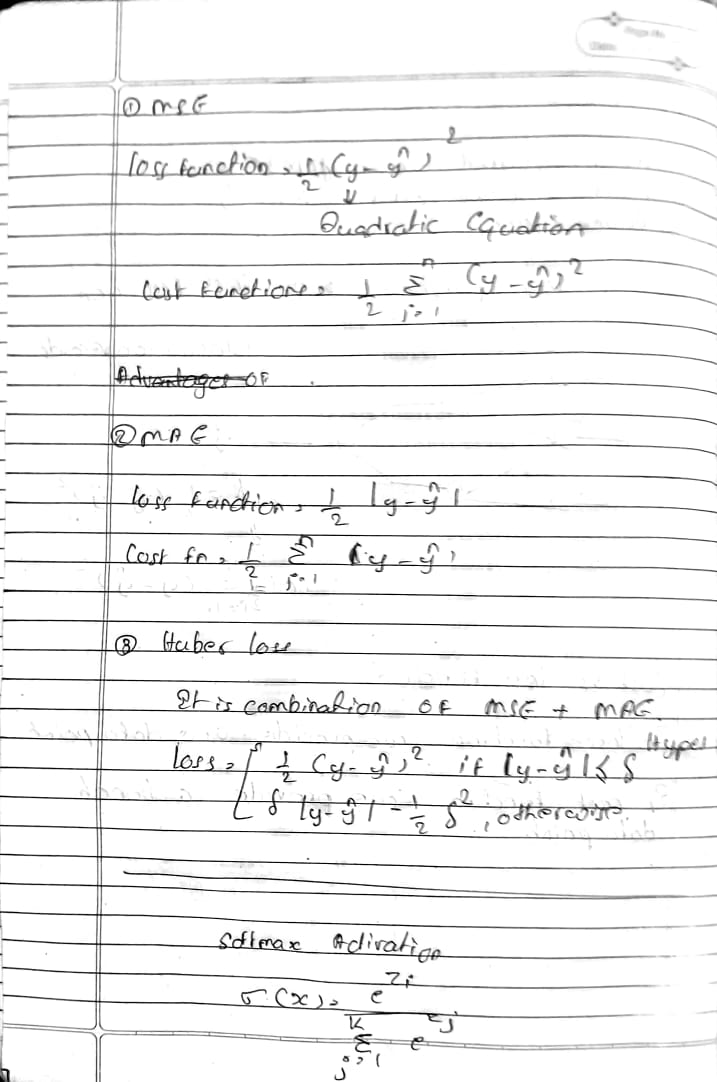 ① MSE
loss function = 1/2 (y - ŷ)²
↓
Quadratic Equation
Cost function = 1/2 Σ_{i=1}^{n} (y - ŷ)²
Advantages OF
② MAE
loss function = 1/2 |y - ŷ|
Cost fn = 1/2 Σ_{i=1}^{n} |y - ŷ|
③ Huber loss
It is combination OF MSE + MAE.
Hyper
loss = { 1/2 (y - ŷ)² if |y - ŷ| ≤ δ
δ |y - ŷ| - 1/2 δ², otherwise.
Softmax Activation
σ(x) = e^{z_i} / Σ_{j=1}^{K} e^{z_j}